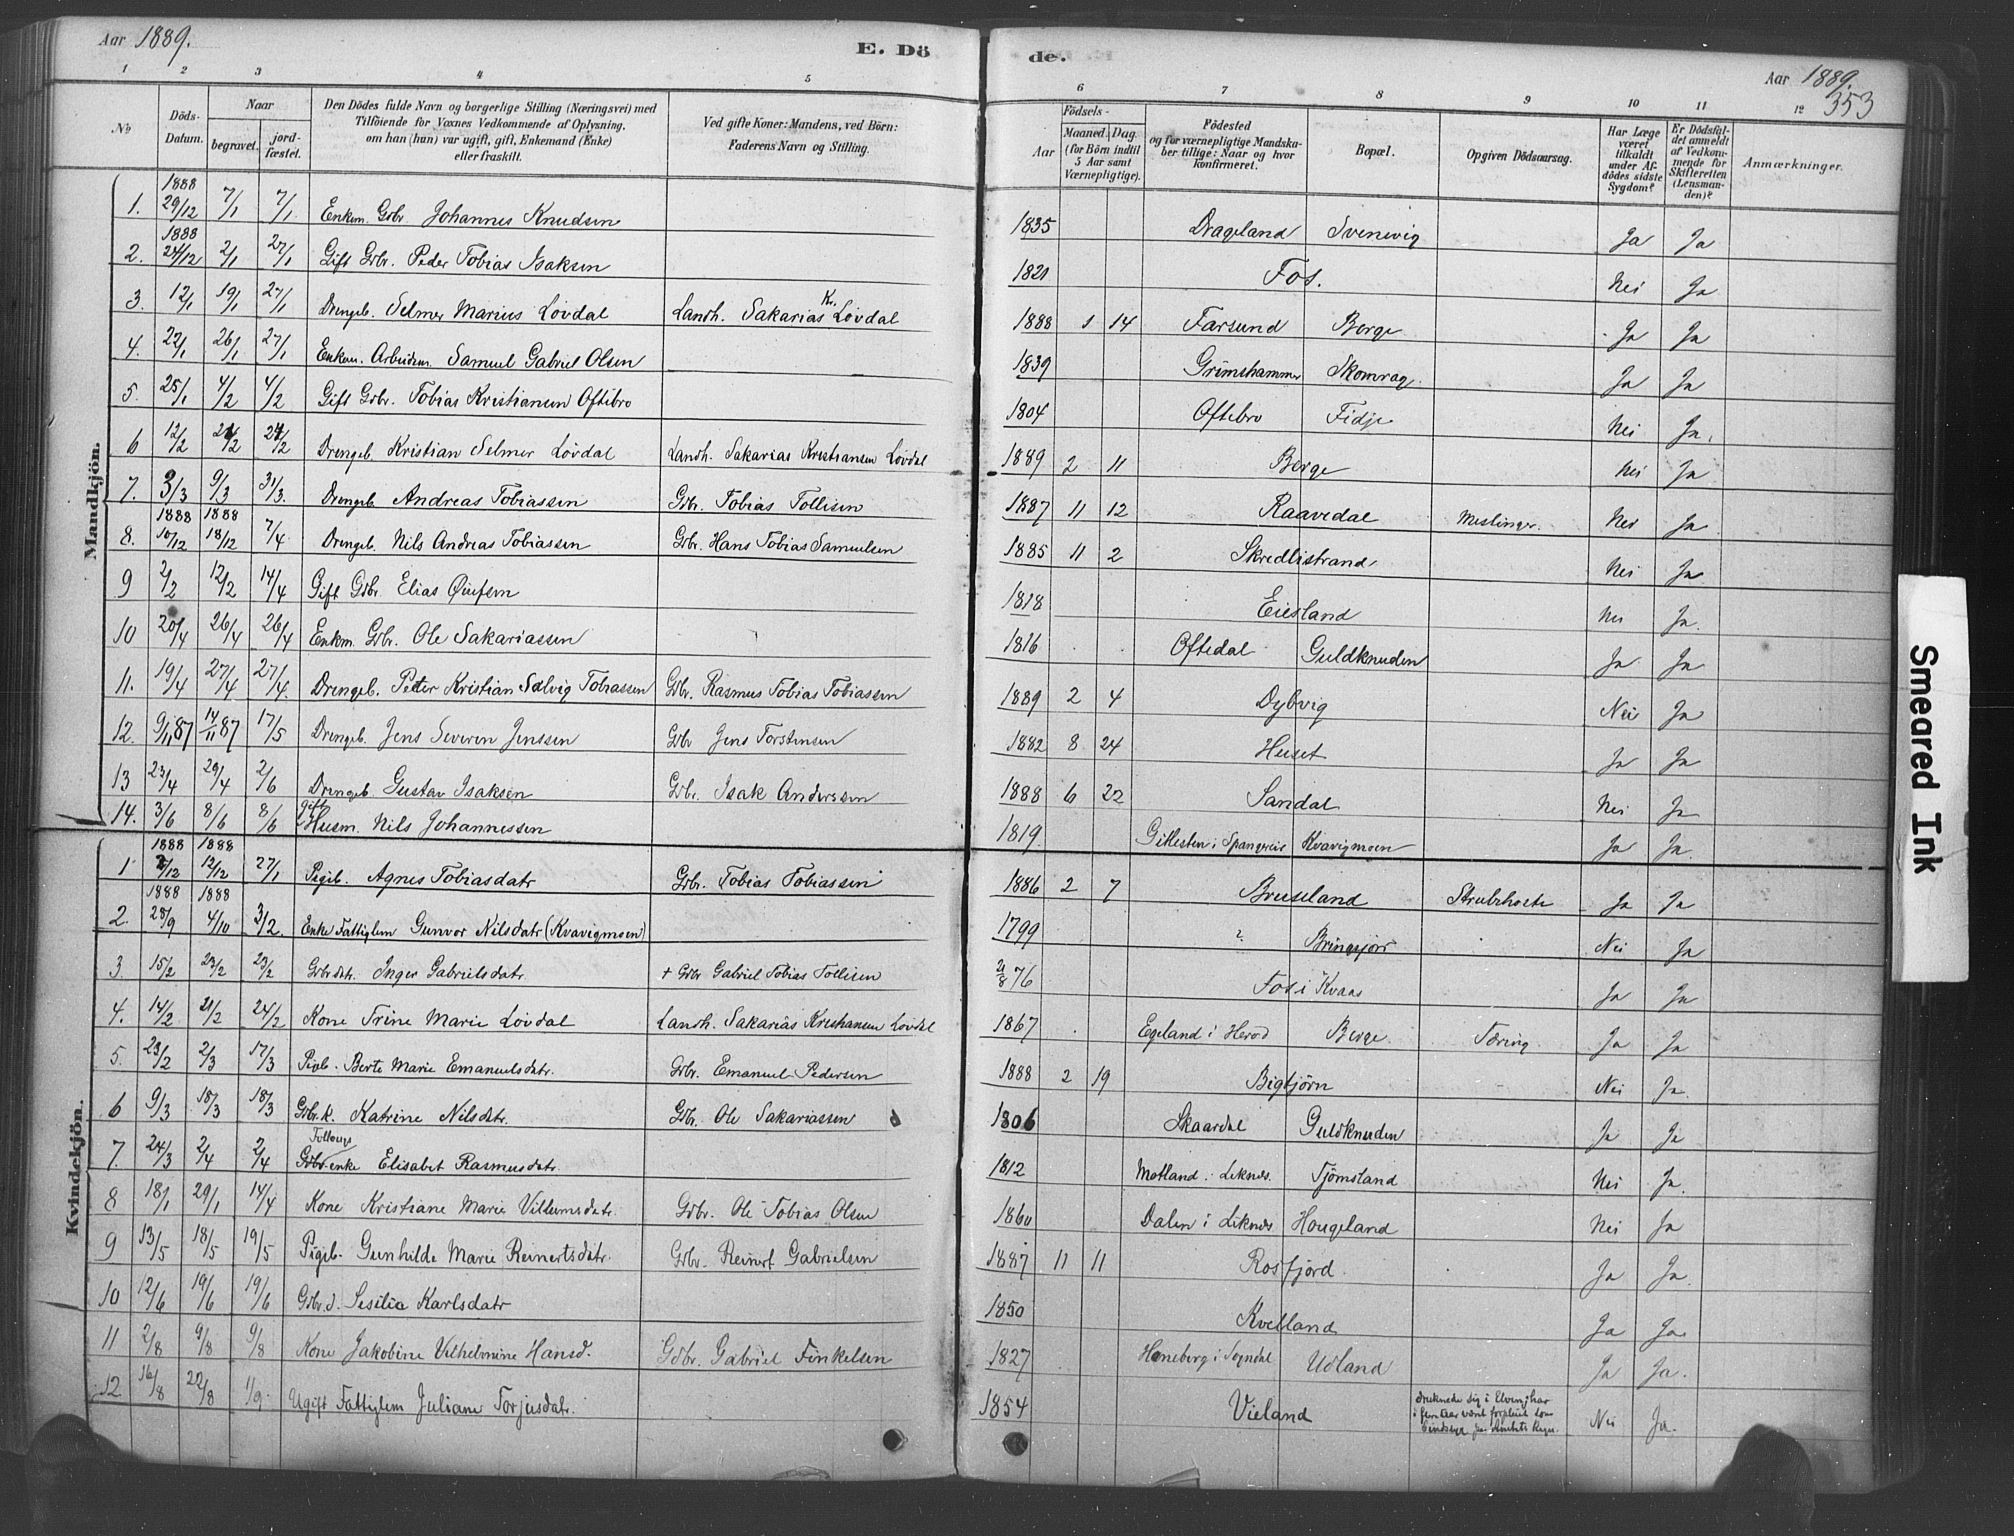 Aar 1889.
E. Dö de.
Aar 1889.
353
1 2 3 4 5 6 7 8 9 10 11 12
No
Döds-Datum.
Naar begravet. jordfæstet.
Den Dödes fulde Navn og borgerlige Stilling (Næringsvei) med
Tilföiende for Voxnes Vedkommende af Oplysning,
om han (hun) var ugift, gift, Enkemand (Enke)
eller fraskilt.
Ved gifte Koner: Mandens, ved Börn:
Faderens Navn og Stilling.
Födsels-
Aar Maaned. Dag.
(for Börn indtil 5 Aar samt Værnepligtige).
Födested
og for værnepligtige Mandskaber tillige: Naar og hvor konfirmeret.
Bopæl.
Opgiven Dödsaarsag.
Har Læge været tilkaldt under Afdödes sidste Sygdom?
Er Dödsfaldet anmeldt af Vedkommende for Skifteretten (Lensmanden)?
Anmærkninger.
Mandkjön.
1. 1888 29/12 7/1 7/1 Enkem. Gbr. Johannes Knudsen 1835 Drageland Svenevig Ja Ja
2. 1888 24/12 2/1 27/1 Gift Gbr. Peder Tobias Isaksen 1821 Fos. Nei Ja
3. 12/1 19/1 27/1 Drengeb. Selmer Marius Lövdal Landh. Sakarias Kr. Lövdal 1888 1 14 Farsund Berge Ja Ja
4. 22/1 26/1 27/1 Enkem. Arbeidsm. Samuel Gabriel Olsen 1839 Grimshammer Skomrag Ja Ja
5. 25/1 4/2 4/2 Gift Gbr. Tobias Kristiansen Oftebro 1804 Oftebro Fidje Nei Ja.
6 12/2 24/2 24/2 Drengeb. Kristian Selmer Lövdal Landh. Sakarias Kristiansen Lövdal 1889 2 11 Berge Nei Ja
7. 3/3 9/3 31/3. Drengeb. Andreas Tobiassen Gbr. Tobias Tollisen 1887 11 12 Raavedal Meslinger. Nei Ja
8. 1888 10/12 1888 18/12 7/4 Drengeb. Nils Andreas Tobiassen Gbr. Hans Tobias Samuelsen 1885 11 2 Skredlistrand Nei Ja
9 2/2 12/2 14/4 Gift Gbr. Elias 1818 Eiesland Nei Ja.
10 20/4 26/4 26/4 Enkm. Gbr. Ole Sakariassen 1816 Oftedal Guldknuden Ja Ja
11. 19/4 27/4 27/4. Drengeb. Peter Kristian Solvig Tobiassen Gbr. Rasmus Tobias Tobiassen 1889 2 4 Dybvig Nei Ja
12. 9/11 87 14/11 87 17/5 Drengeb. Jens Severin Jenssen Gbr Jens Torstensen 1882 8 24 Huset Ja Ja
13 23/4 29/4 2/6 Drengeb. Gustav Isaksen Gbr. Isak Anderssen 1888 6 22 Sandal Nei Ja
14. 3/6 8/6 8/6 gift Husm. Nils Johannessen 1819. Gitlesten i Spangereid Kvavigmoen Ja Ja.
Kvindekjön.
1 1888 /12 1888 12/12 27/1 Pigeb. Agnes Tobiasdatr Gbr. Tobias Tobiassen 1886 2 7 Bruseland Strubehoste Ja Ja
2. 1888 28/9 1888 4/10 3/2. Enke Fattiglem Gunvor Nilsdatr (Kvavigmoen) 1799 ? Bringsjör Nei Ja
3. 15/2 23/2 23/2 Gbrdatr. Inger Gabrielsdatr. + Gbr Gabriel Tobias Tollisen 21/8 76 Fos i Kvaas Ja Ja
4. 14/2 21/2 24/2 Kone Trine Marie Lövdal Landh. Sakarias Kristiansen Lövdal 1867 Egeland i Herod Berge Tæring. Ja Ja
5. 23/2 2/3 17/3 Pigeb. Berte Marie Emanuelsdatr. Gbr. Emanuel Pedersen 1888 2 19 Bigtjörn Nei Ja
6 9/3 18/3 18/3 Gbr.k. Katrine Nilsdatr. Gbr. Ole Sakariassen 1806 Skaardal Guldknuden Ja Ja
7. 24/3 2/4 2/4 Follougs Gbr.enke Elisabet Rasmusdatr. 1812 Motland i Leknes. Tjömsland Nei Ja.
8 18/1 29/1 14/4 Kone Kristiane Marie Villumsdatr. Gbr. Ole Tobias Olsen 1860 Dalen i Leknes Hougeland Nei Ja
9 13/5 18/5 19/5 Pigeb. Gunhilde Marie Reinertsdatr. Gbr. Reinert Gabrielsen 1887 11 11 Rosfjord. Ja Ja.
10 12/6 19/6 19/6 Gbr.d. Sesilie Karlsdatr 1850 Kvelland Ja Ja
11 2/8 9/8 9/8 Kone Jakobine Vilhelmine Hansd. Gdbr. Gabriel Finkelsen 1827 Haneberg i Sogndal Udland Ja Ja.
12 16/8 22/8 1/9. Ugift Fattiglem Juliane Torjusdatr. 1854 Vieland druknede sig i Elven; har i fem Aar været forpleiet som Sindssyg Amtets Regn. Nei Ja.
Smeared Ink